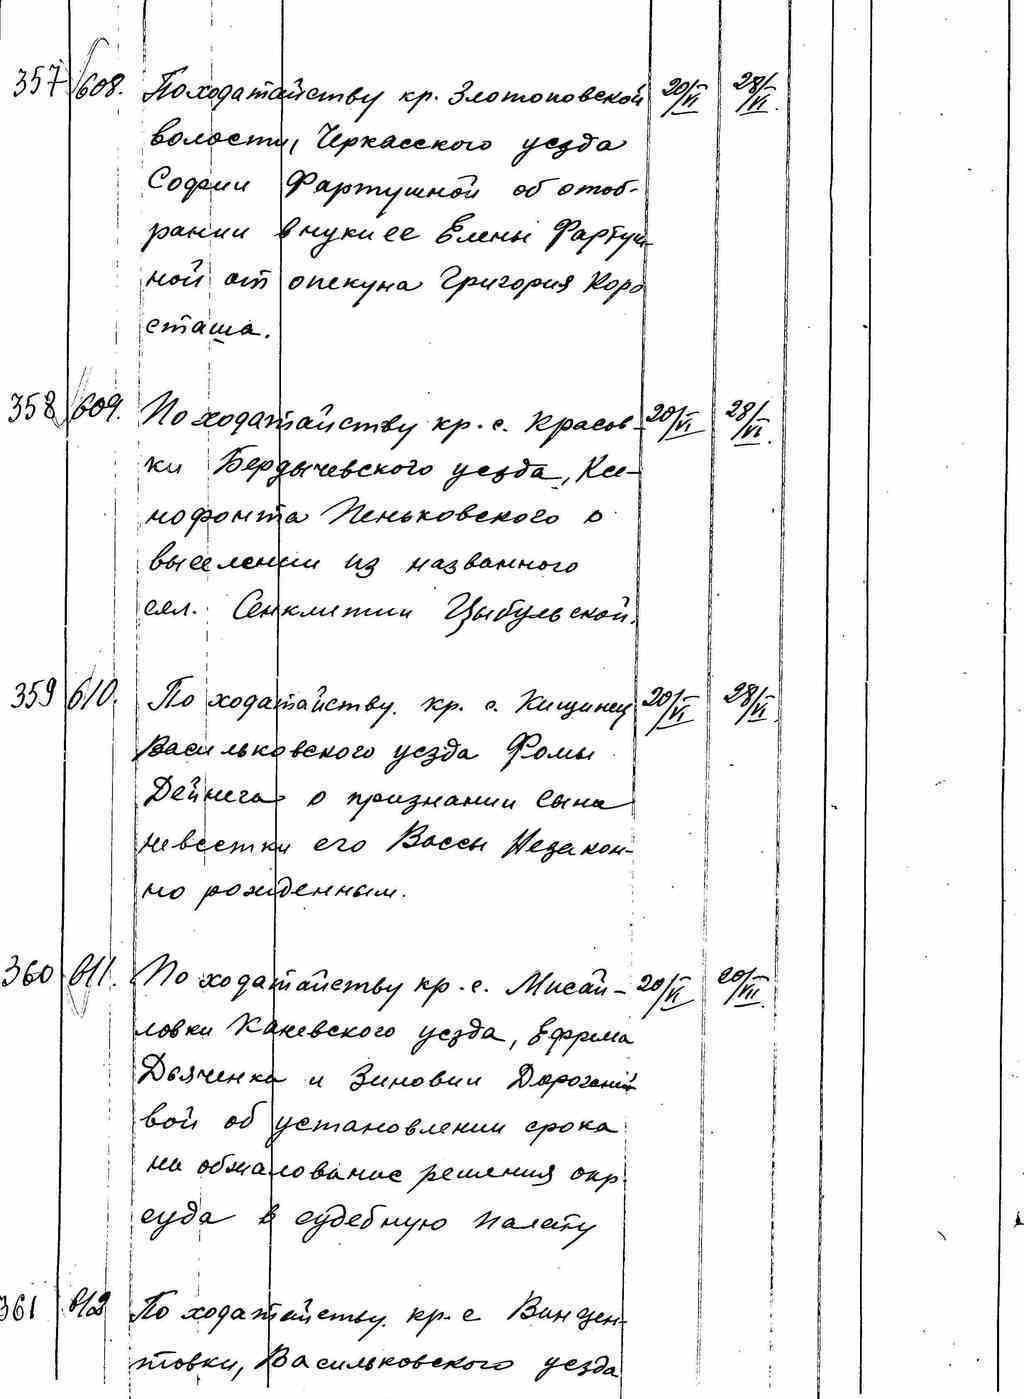 357 608. По ходатайству кр. Златоповской 20/VI 28/VI.
волости, Черкасского уезда
Софии Фартушной об отоб-
рании внуки ее Елены Фартуш-
ной от опекуна Григория Коро
сташа.
358 609. По ходатайству кр. с. Красов- 20/VI 28/VI.
ки Бердычевского уезда, Ксе-
нофонта Пеньковского о
выселении из названного
сел. Сенклитии Цыбульской.
359 610. По ходатайству кр. с. Кищинец 20/VI 28/VI.
Васильковского уезда Фомы
Дейнега о признании сына
невестки его Вассы Незакон-
но рожденным.
360 611. По ходатайству кр. с. Мисай- 20/VI 20/VII.
ловки Каневского уезда, Ефрема
Дьяченка и Зиновии
вой об установлении срока
на обжалование решения окр.
суда в судебную палату
361 612 По ходатайству кр. с Винцен-
товки, Васильковского уезда